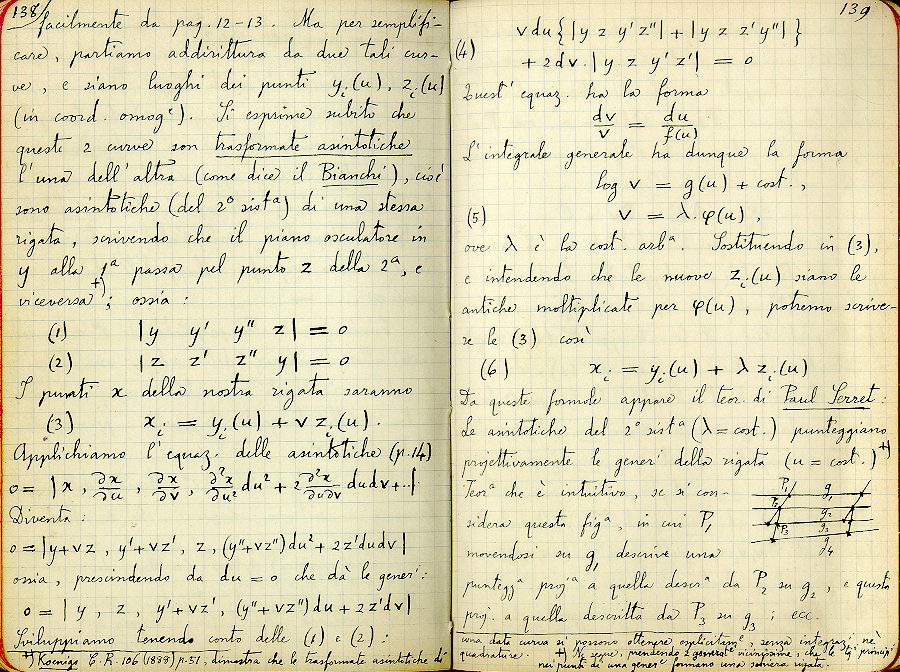 138
facilmente da pag. 12-13. Ma per semplifi-
care, partiamo addirittura da due tali cur-
ve, e siano luoghi dei punti yᵢ(u), zᵢ(u)
(in coord. omogᵉ). Si esprime subito che
queste 2 curve son trasformate asintotiche
l'una dell'altra (come dice il Bianchi), cioè
sono asintotiche (del 2º sistᵃ) di una stessa
rigata, scrivendo che il piano osculatore in
y alla 1ᵃ passa pel punto z della 2ᵃ, e
viceversa +); ossia:
(1) |y y' y'' z| = 0
(2) |z z' z'' y| = 0
I punti x della nostra rigata saranno
(3) xᵢ = yᵢ(u) + v zᵢ(u).
Applichiamo l'equaz. delle asintotiche (p. 14)
0 = |x, ∂x/∂u, ∂x/∂v, ∂²x/∂u² du² + 2 ∂²x/∂u∂v du dv + ..|
Diventa:
0 = |y+vz, y'+vz', z, (y''+vz'')du² + 2z'dudv|
ossia, prescindendo da du = 0 che dà le generⁱ:
0 = |y, z, y'+vz', (y''+vz'')du + 2z'dv|
Sviluppiamo tenendo conto delle (1) e (2):
+) Koenigs C. R. 106 (1888) p. 51, dimostra che le trasformate asintotiche di
139
v du {|y z y' z''| + |y z z' y''|}
(4) + 2dv. |y z y' z'| = 0
Quest'equaz. ha la forma
dv/v = du/f(u)
L'integrale generale ha dunque la forma
log v = g(u) + cost.,
(5) v = λ.φ(u),
ove λ è la cost. arbᵃ. Sostituendo in (3),
e intendendo che le nuove zᵢ(u) siano le
antiche moltiplicate per φ(u), potremo scrive-
re le (3) così
(6) xᵢ = yᵢ(u) + λ zᵢ(u)
Da queste formole appare il teor. di Paul Serret:
Le asintotiche del 2º sistᵃ (λ = cost.) punteggiano
projettivamente le generⁱ della rigata (u = cost.) +)
Teorᵃ che è intuitivo, se si con-
sidera questa figᵃ, in cui P₁
movendosi su g₁ descrive una
punteggᵃ projᵃ a quella descrᵃ da P₂ su g₂, e questa
proj. a quella descritta da P₃ su g₃; ecc.
P₁ g₁
P₂ g₂
P₃ g₃
g₄
una data curva si possono ottenere esplicitamᵉ, senza integrazⁱ nè
quadrature. +) Ne segue, prendendo 2 generatⁱ vicinissime, che le 4 piani
nei punti di una generᵉ formano una schiera rigata.